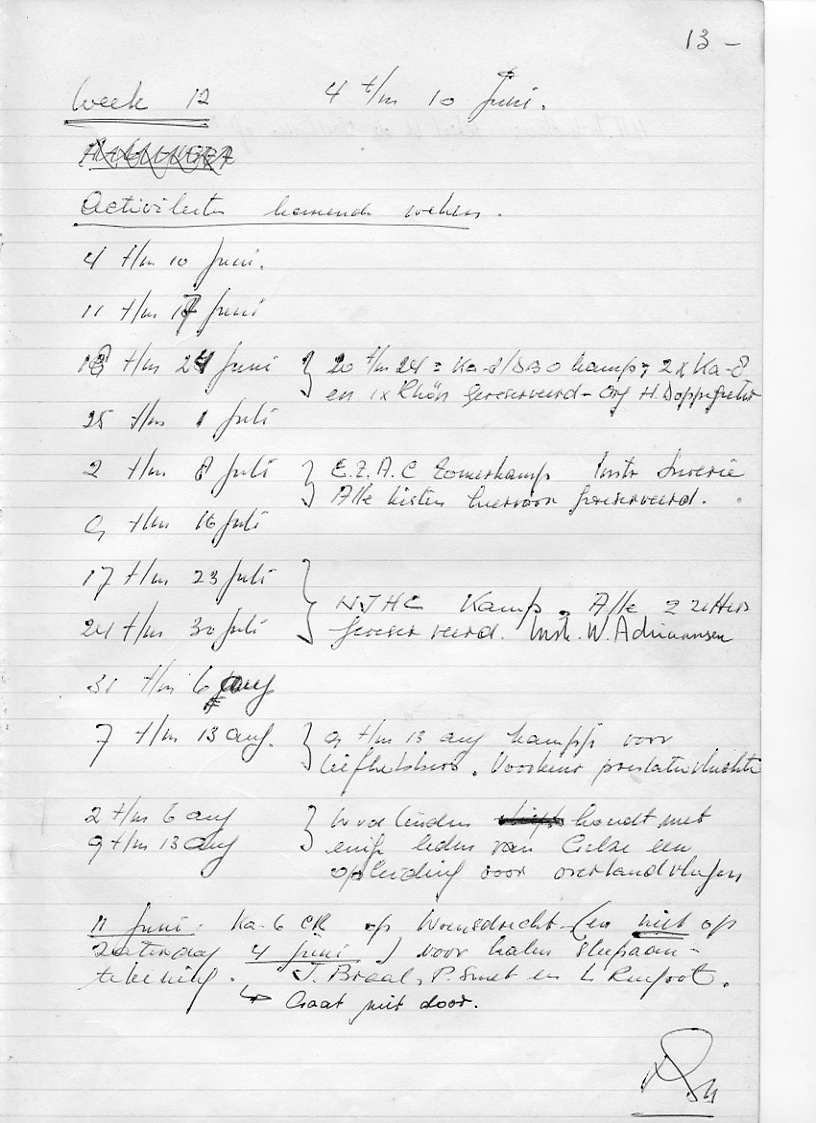 13 -
Week 12 4 t/m 10 Juni.
Activiteiten komende weken.
4 t/m 10 Juni.
11 t/m 17 Juni
18 t/m 24 Juni } 20 t/m 24 = Ka-8/ kamp; 2x Ka-8
en 1x Rhön gereserveerd - Org H.
25 t/m 1 Juli
2 t/m 8 Juli } E.Z.A.C Zomerkamp Instr
Alle kisten hiervoor gereserveerd.
9 t/m 16 Juli
17 t/m 23 Juli
NJHC Kamp. Alle 2 zitters
24 t/m 30 Juli } gereserveerd. Instr. W. Adriaansen
31 t/m 6 aug
7 t/m 13 aug. } 9 t/m 13 aug kampje voor
liefhebbers. Voorkeur prestatievluchten
2 t/m 6 aug } W vd Linden houdt met
9 t/m 13 aug enige leden van Gilze een
opleiding voor overlandvliegen
11 Juni: Ka-6 CR op Woensdrecht (en niet op
zaterdag 4 Juni) voor halen sleepaan-
tekening. J. Braal, P. Smet en L
↳ Gaat niet door.